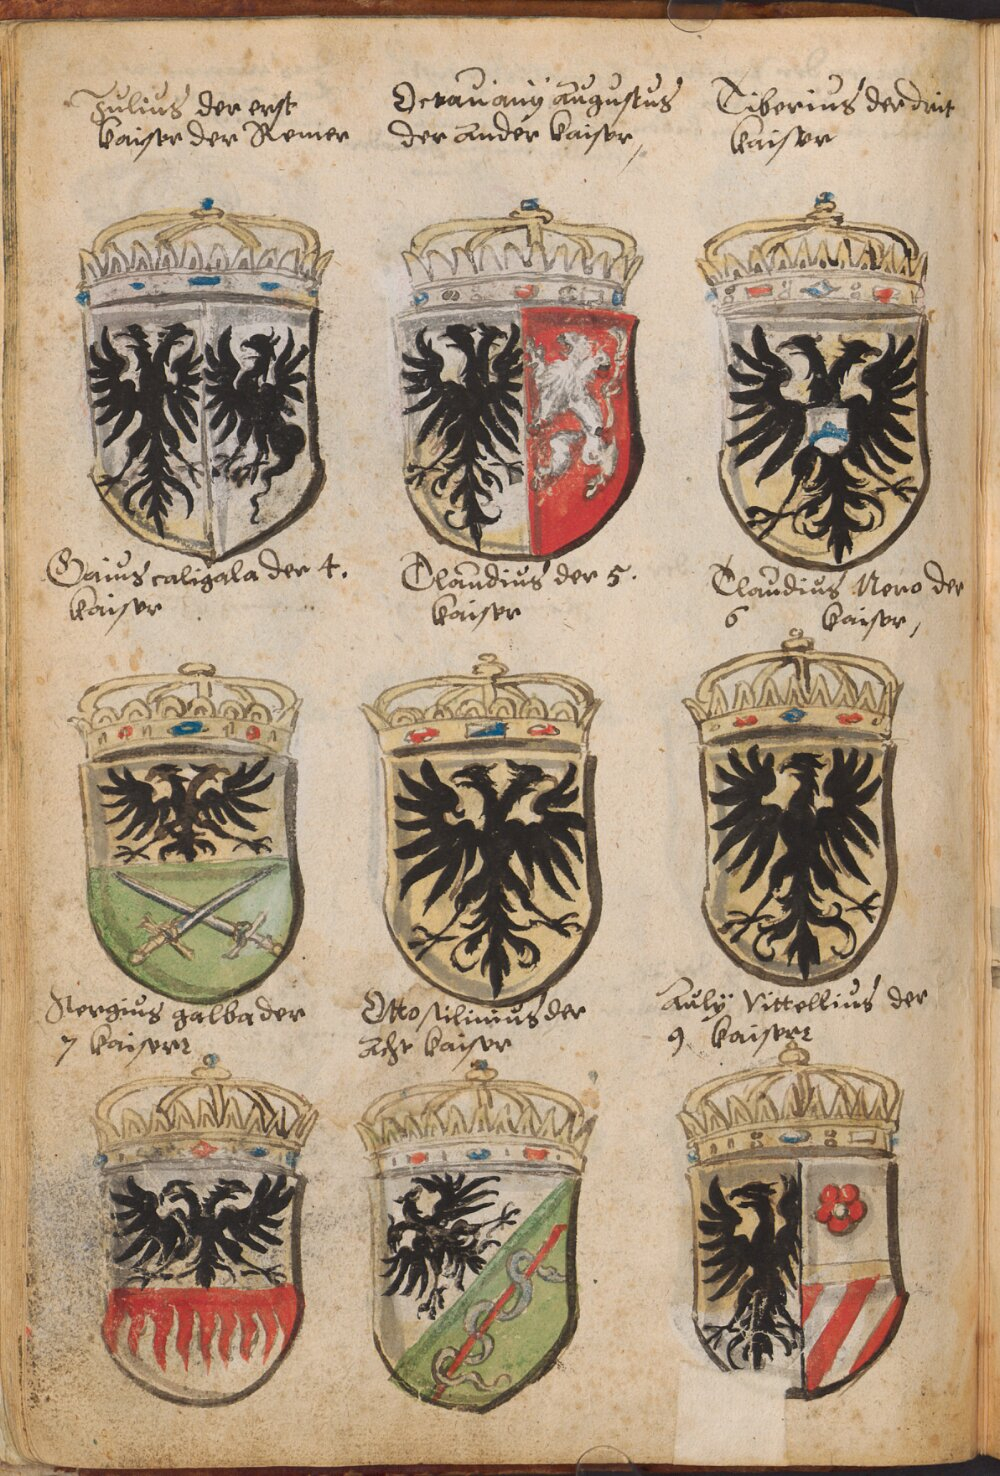 Julius der erst
kaiser der Remer
Octavianÿ Augustus
der ander kaiser,
Tiberius der drit
kaiser
Gaius caligala der 4.
kaiser
Claudius der 5.
kaiser
Claudius Nero der
6 kaiser,
Sergius galba der
7 kaiser
Otto silinius der
acht kaiser
Aulÿ Vittellius der
9 kaiser